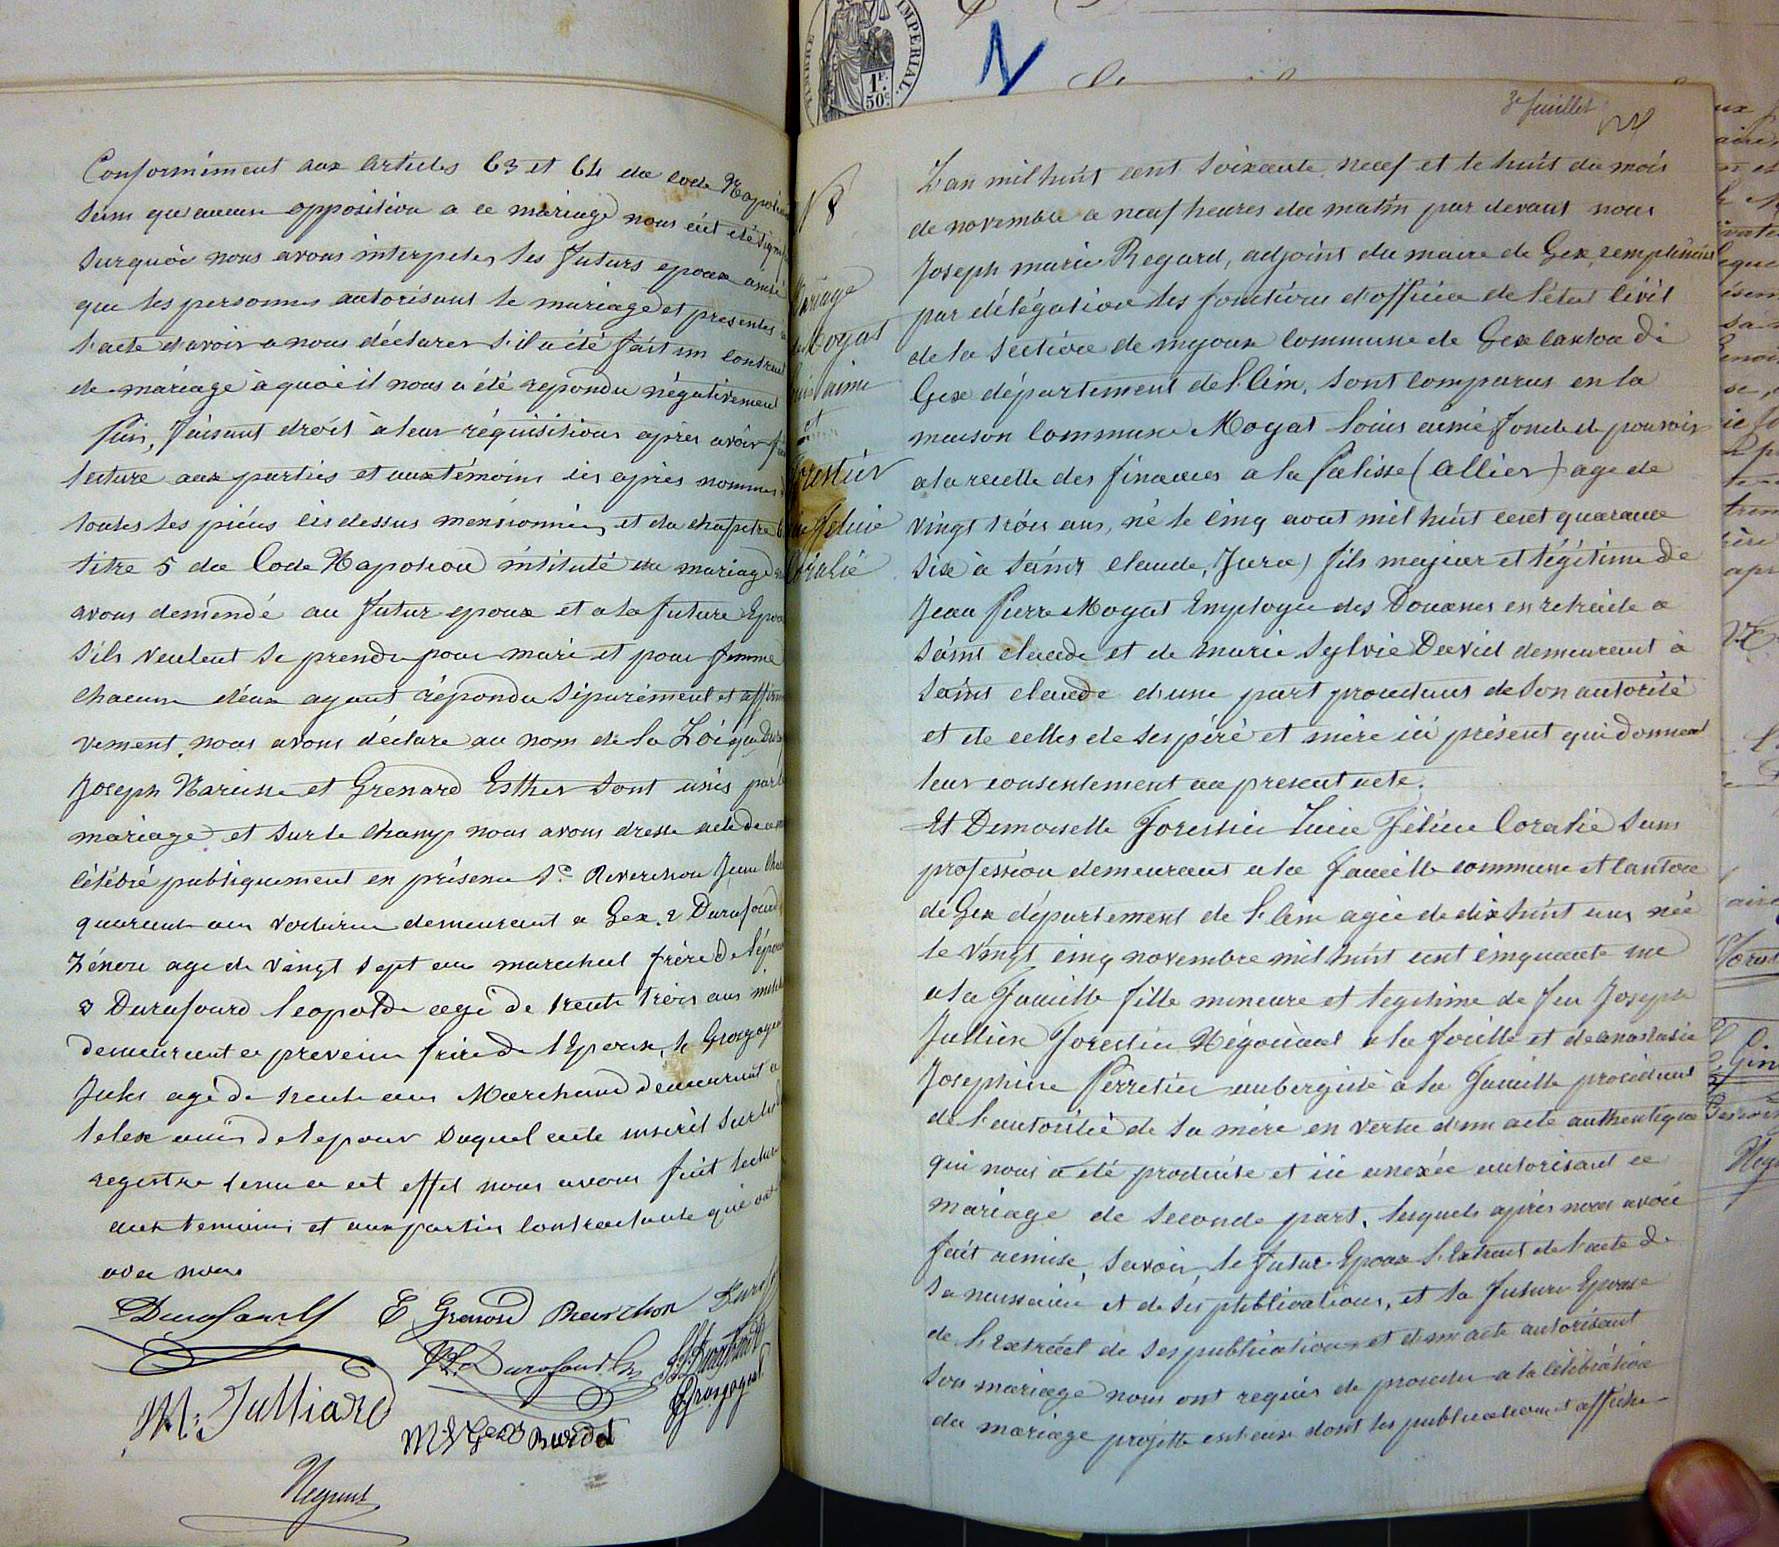 Conformément aux articles 63 et 64 du code Napoléon
sans qu'aucune opposition a ce mariage nous eût été signifié
surquoi nous avons interpeler les futurs epoux ainsi
que les personnes autorisant le mariage et presentes à
l'acte d'avoir a nous déclarer s'il a été fait un contrat
de mariage à quoi il nous a été repondu négativement
Puis, faisant droit à leur réquisitions après avoir fait
lecture aux parties et aux témoins ici après nommes
toutes les pièces ci dessus mensionnées, et du chapitre 6
titre 5 du Code Napoleon intitulé du mariage
avons demendé au futur epoux et a la future Epouse
s'ils veulent se prendre pour mari et pour femme
chacun d'eux ayant répondu séparément et affirmati
vement, nous avons déclaré au nom de la Loi que Dura
Joseph Narcisse et Grenard Esther sont unis par le
mariage et sur le champ nous avons dressé acte de
célébré publiquement en présence 1º Reverchon Jean
quarante ans voiturier demeurant a Gex, 2 Durafourd
Zénon age de vingt sept ans marechal frère de l'épouse
3 Durafourd Leopolde agé de trente trois ans
demeurant a frère de l'Epoux, 4 Grosgogeat
Jules agé de trente ans Marchand demeurant a
lelex amis de lepoux Duquel acte inscrit sur les
registre tenu a cet effet nous avons fait lecture
aux temoins et aux parties Contractante qui ont
avec nous
E Grenard Reverchon
M. Julliard
Burdet
Regard
TIMBRE IMPERIAL
1F.
50c
3e feuillet
N
8
Mariage
Mogat
Louis aimé
et
Forestier
Lucie Felicie
Coralie
L'an mil huit cent soixante neuf et le huit du mois
de novembre a neuf heures du matin par devant nous
Joseph marie Regard, adjoint du maire de Gex, remplissant
par délégation les fonctions d'officier de l'état Civil
de la section de mijoux commune de Gex canton de
Gex département de l'Ain, sont comparus en la
maison Commune Mogat Louis aimé fondé de pouvoir
a la recette des finances a la Palisse (Allier) age de
vingt trois ans, né le cinq aout mil huit cent quarante
six à Saint claude, (Jura) fils majeur et légitime de
Jean Pierre Mogat Employé des Douanes en retraite a
Saint claude et de marie Sylvie David demeurant à
Saint claude d'une part procedant de son autorité
et de celles de ses père et mère ici présent qui donnent
leur consentement au present acte.
Et Demoiselle Forestier Lucie Félicie Coralie sans
profession demeurant a la faucille commune et canton
de Gex département de l'Ain agée de dix huit ans née
le vingt cinq novembre mil huit cent cinquante un
a la Faucille fille mineure et legitime de feu Joseph
Jullien Forestier Négociant a la faucille et de anastasie
Josephine Perretier aubergiste à la Faucille procédant
de l'autorité de sa mère en vertu d'un acte authentique
qui nous a été produite et ici anexée autorisant ce
mariage de seconde part, lesquels après nous avoir
fait remise, savoir, le futur Epoux l'Extrait de l'acte de
sa naissance et de ses publications, et la future Epouse
de l'Extrait de ses publications et d'un acte autorisant
son mariage nous ont requis de proceder a la célébration
du mariage projetté entr'eux dont les publications et affiches